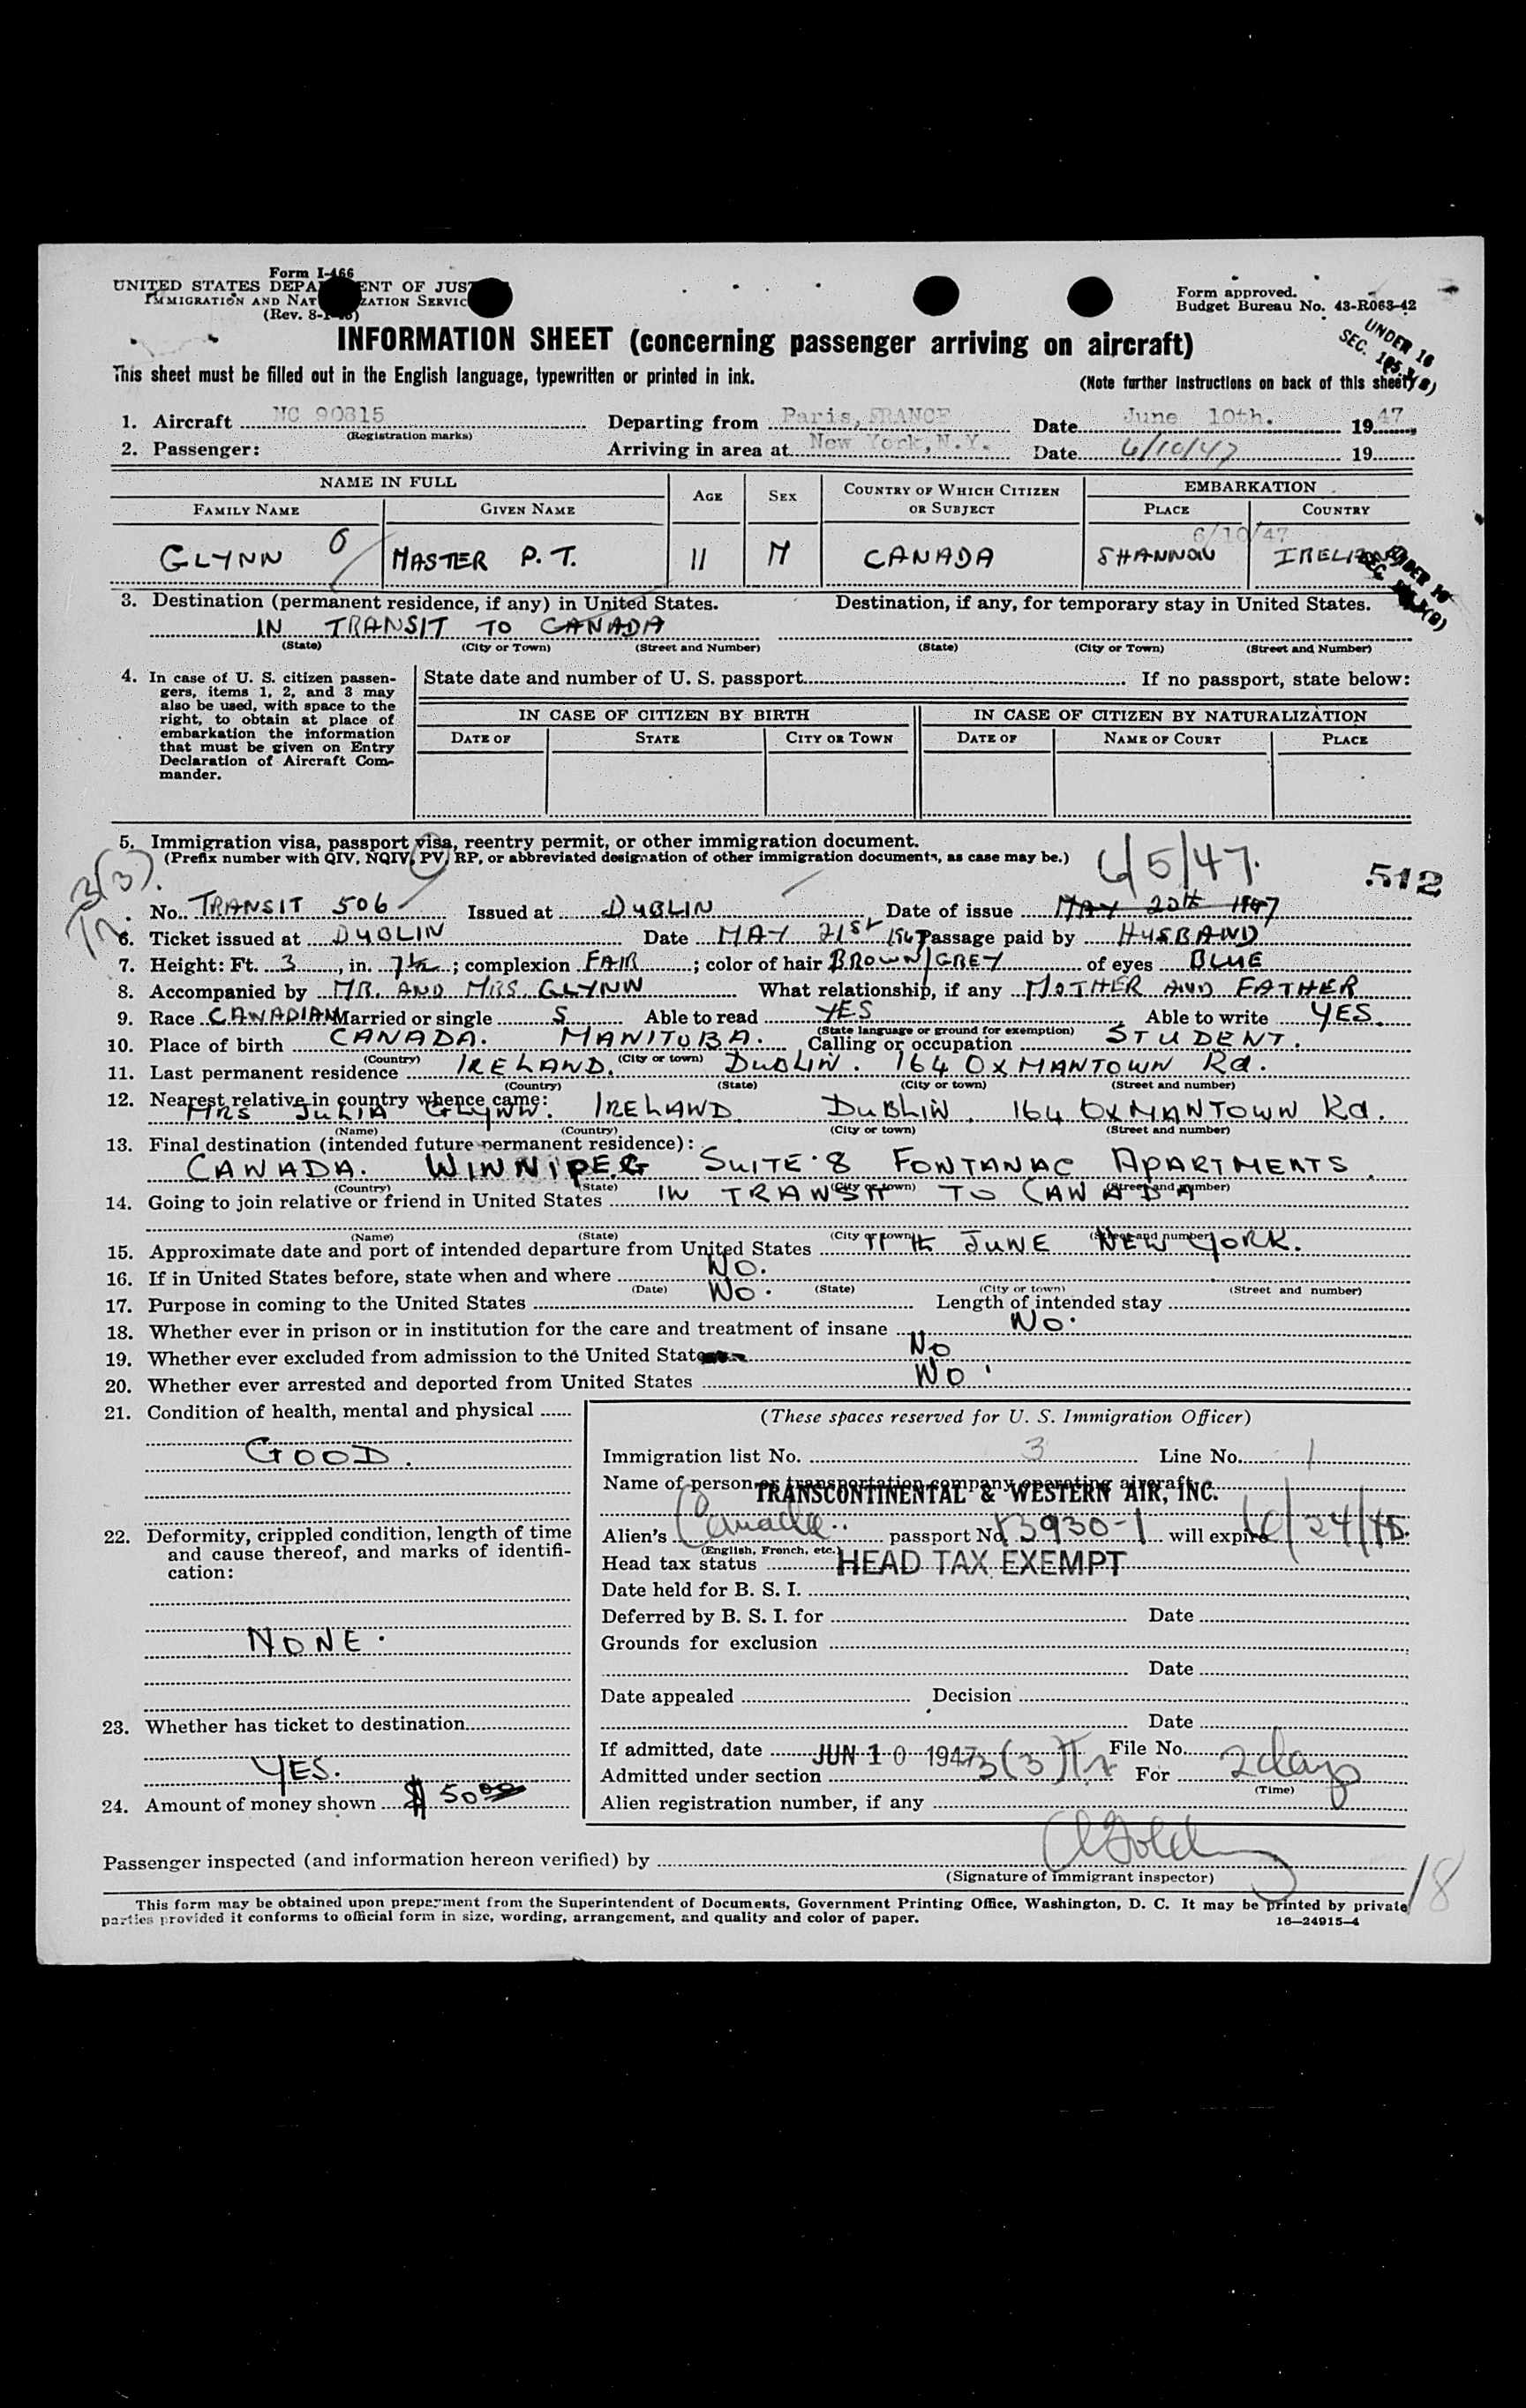 Form I-466
UNITED STATES DEPA ENT OF JUS
IMMIGRATION AND NAT ZATION SERVIC
(Rev. 8-1-45)
Form approved.
Budget Bureau No. 43-R063-42
INFORMATION SHEET (concerning passenger arriving on aircraft)
UNDER 16
SEC.
This sheet must be filled out in the English language, typewritten or printed in ink.
(Note further instructions on back of this sheet)
1. Aircraft NC 90815 Departing from Paris, FRANCE Date June 10th. 1947
(Registration marks)
2. Passenger: Arriving in area at New York, N.Y. Date 6/10/47 19
NAME IN FULL AGE SEX COUNTRY OF WHICH CITIZEN OR SUBJECT EMBARKATION
FAMILY NAME GIVEN NAME PLACE COUNTRY
6/10/47
GLYNN MASTER P.T. 11 M CANADA SHANNON IRELAND
3. Destination (permanent residence, if any) in United States. Destination, if any, for temporary stay in United States.
IN TRANSIT TO CANADA
(State) (City or Town) (Street and Number) (State) (City or Town) (Street and Number)
4. In case of U. S. citizen passengers, items 1, 2, and 3 may also be used, with space to the right, to obtain at place of embarkation the information that must be given on Entry Declaration of Aircraft Commander.
State date and number of U. S. passport If no passport, state below:
IN CASE OF CITIZEN BY BIRTH IN CASE OF CITIZEN BY NATURALIZATION
DATE OF STATE CITY OR TOWN DATE OF NAME OF COURT PLACE
5. Immigration visa, passport visa, reentry permit, or other immigration document.
(Prefix number with QIV, NQIV, PV, RP, or abbreviated designation of other immigration documents, as case may be.)
6/5/47.
512
3(3)
No. TRANSIT 506 Issued at DUBLIN Date of issue MAY 20th 1947
6. Ticket issued at DUBLIN Date MAY 21st 1947 Passage paid by HUSBAND
7. Height: Ft. 3, in. 7½; complexion FAIR; color of hair BROWN/GREY of eyes BLUE
8. Accompanied by MR. AND MRS GLYNN What relationship, if any MOTHER AND FATHER
9. Race CANADIAN Married or single S Able to read YES Able to write YES
(State language or ground for exemption)
10. Place of birth CANADA. MANITOBA. Calling or occupation STUDENT.
(Country) (City or town)
11. Last permanent residence IRELAND. DUBLIN. 164 OXMANTOWN Rd.
(Country) (State) (City or town) (Street and number)
12. Nearest relative in country whence came:
MRS JULIA GLYNN. IRELAND DUBLIN. 164 OXMANTOWN Rd.
(Name) (Country) (City or town) (Street and number)
13. Final destination (intended future permanent residence):
CANADA. WINNIPEG SUITE 8 FONTANAC APARTMENTS.
(Country) (State) (City or town) (Street and number)
14. Going to join relative or friend in United States IN TRANSIT TO CANADA
(Name) (State) (City or town) (Street and number)
15. Approximate date and port of intended departure from United States 11th JUNE NEW YORK.
16. If in United States before, state when and where NO.
(Date) (State) (City or town) (Street and number)
17. Purpose in coming to the United States NO. Length of intended stay
18. Whether ever in prison or in institution for the care and treatment of insane NO.
19. Whether ever excluded from admission to the United States NO
20. Whether ever arrested and deported from United States NO.
21. Condition of health, mental and physical
GOOD.
22. Deformity, crippled condition, length of time and cause thereof, and marks of identification:
NONE.
23. Whether has ticket to destination
YES.
24. Amount of money shown $ 50.00
(These spaces reserved for U. S. Immigration Officer)
Immigration list No. 3 Line No. 1
Name of person or transportation company operating aircraft
TRANSCONTINENTAL & WESTERN AIR, INC.
Alien's Canada passport No. 13930-1 will expire
(English, French, etc.)
Head tax status HEAD TAX EXEMPT
Date held for B. S. I.
Deferred by B. S. I. for Date
Grounds for exclusion
Date
Date appealed Decision
Date
If admitted, date JUN 10 1947 File No.
Admitted under section 3(3) For 2 days
(Time)
Alien registration number, if any
Passenger inspected (and information hereon verified) by
(Signature of immigrant inspector)
18
This form may be obtained upon prepayment from the Superintendent of Documents, Government Printing Office, Washington, D. C. It may be printed by private
parties provided it conforms to official form in size, wording, arrangement, and quality and color of paper.
16—24915-4